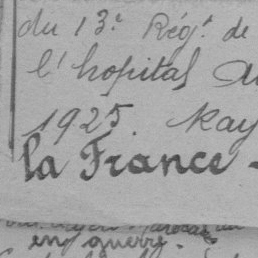 du 13e Régt de
l'hopital
1925. Kay
la France -
en guerre.